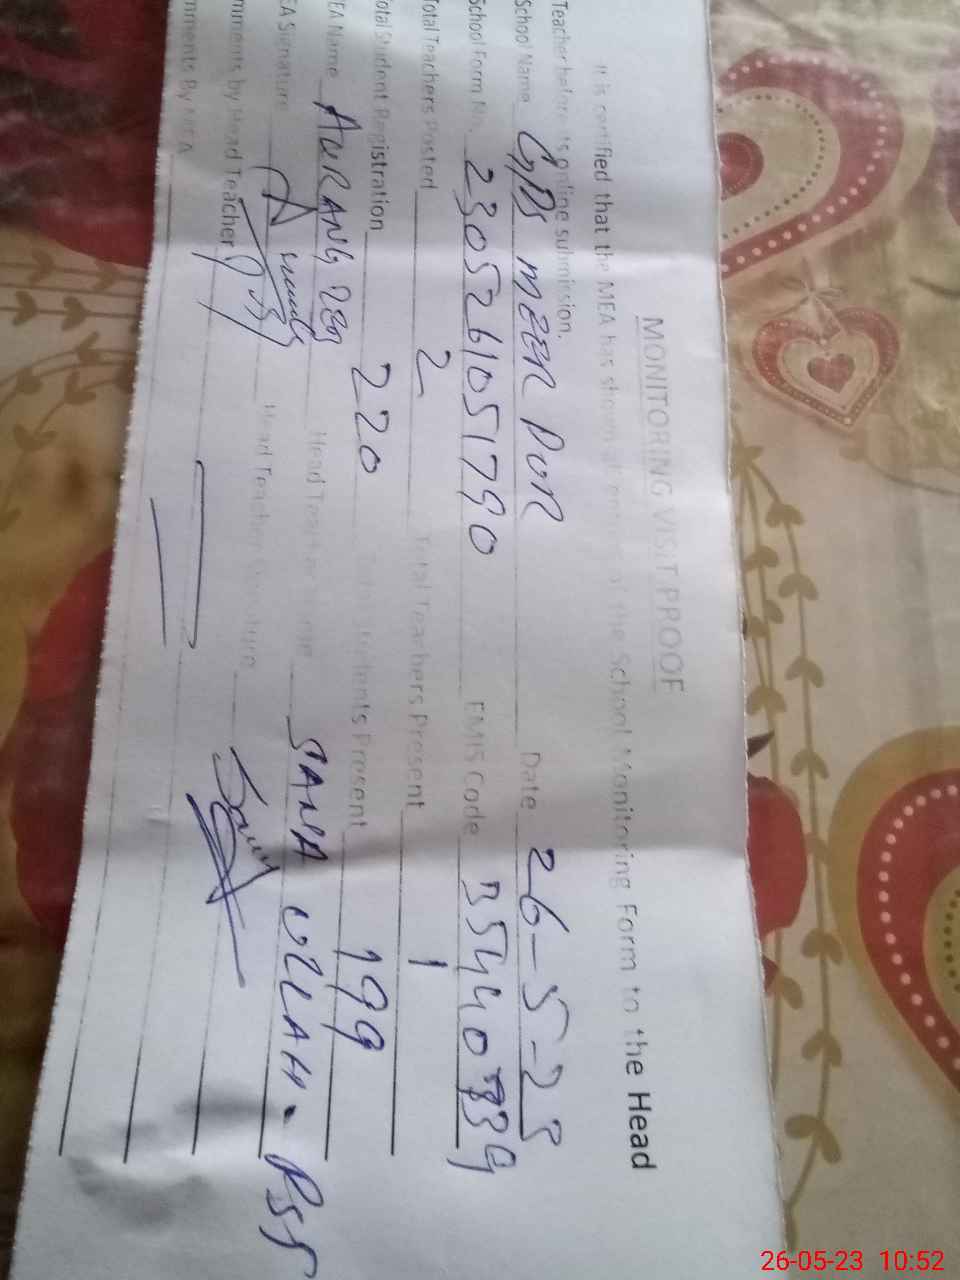 MONITORING VISIT PROOF
It is certified that the MEA has shown all entries of the School Monitoring Form to the Head
Teacher before its online submission.
School Name GPS MEER DOR Date 26-5-23
School Form No. 2305261051790 EMIS Code 35440339
Total Teachers Posted 2 Total Teachers Present 1
Total Student Registration 220 Total Students Present 199
MEA Name AURANG ZEB Head Teacher Name SANA ULLAH. PST
MEA Signature Head Teacher Signature
Comments by Head Teacher
Comments By MEA
26-05-23 10:52